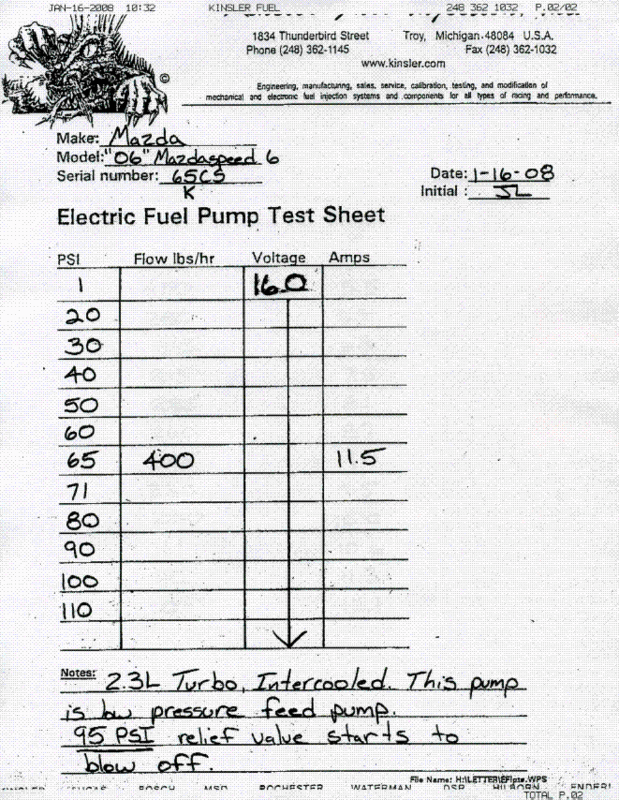 JAN-16-2008 10:32 KINSLER FUEL 248 362 1032 P.02/02
1834 Thunderbird Street Troy, Michigan 48084 U.S.A.
Phone (248) 362-1145 Fax (248) 362-1032
www.kinsler.com
©
Engineering, manufacturing, sales, service, calibration, testing, and modification of
mechanical and electronic fuel injection systems and components for all types of racing and performance.
Make: Mazda
Model: "06" Mazdaspeed 6
Serial number: 65C5
K
Date: 1-16-08
Initial: JL
Electric Fuel Pump Test Sheet
PSI Flow lbs/hr Voltage Amps
1 16.0
20
30
40
50
60
65 400 11.5
71
80
90
100
110
Notes: 2.3L Turbo, Intercooled. This pump
is low pressure feed pump.
95 PSI relief value starts to
blow off.
File Name: H:\LETTER\EFIpts.WPS
BOSCH MSD ROCHESTER WATERMAN DSR HILBORN
TOTAL P.02